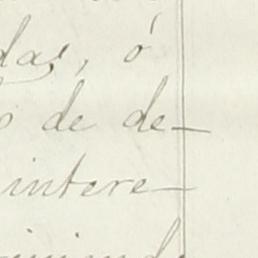 das, ó
de de-
intere-